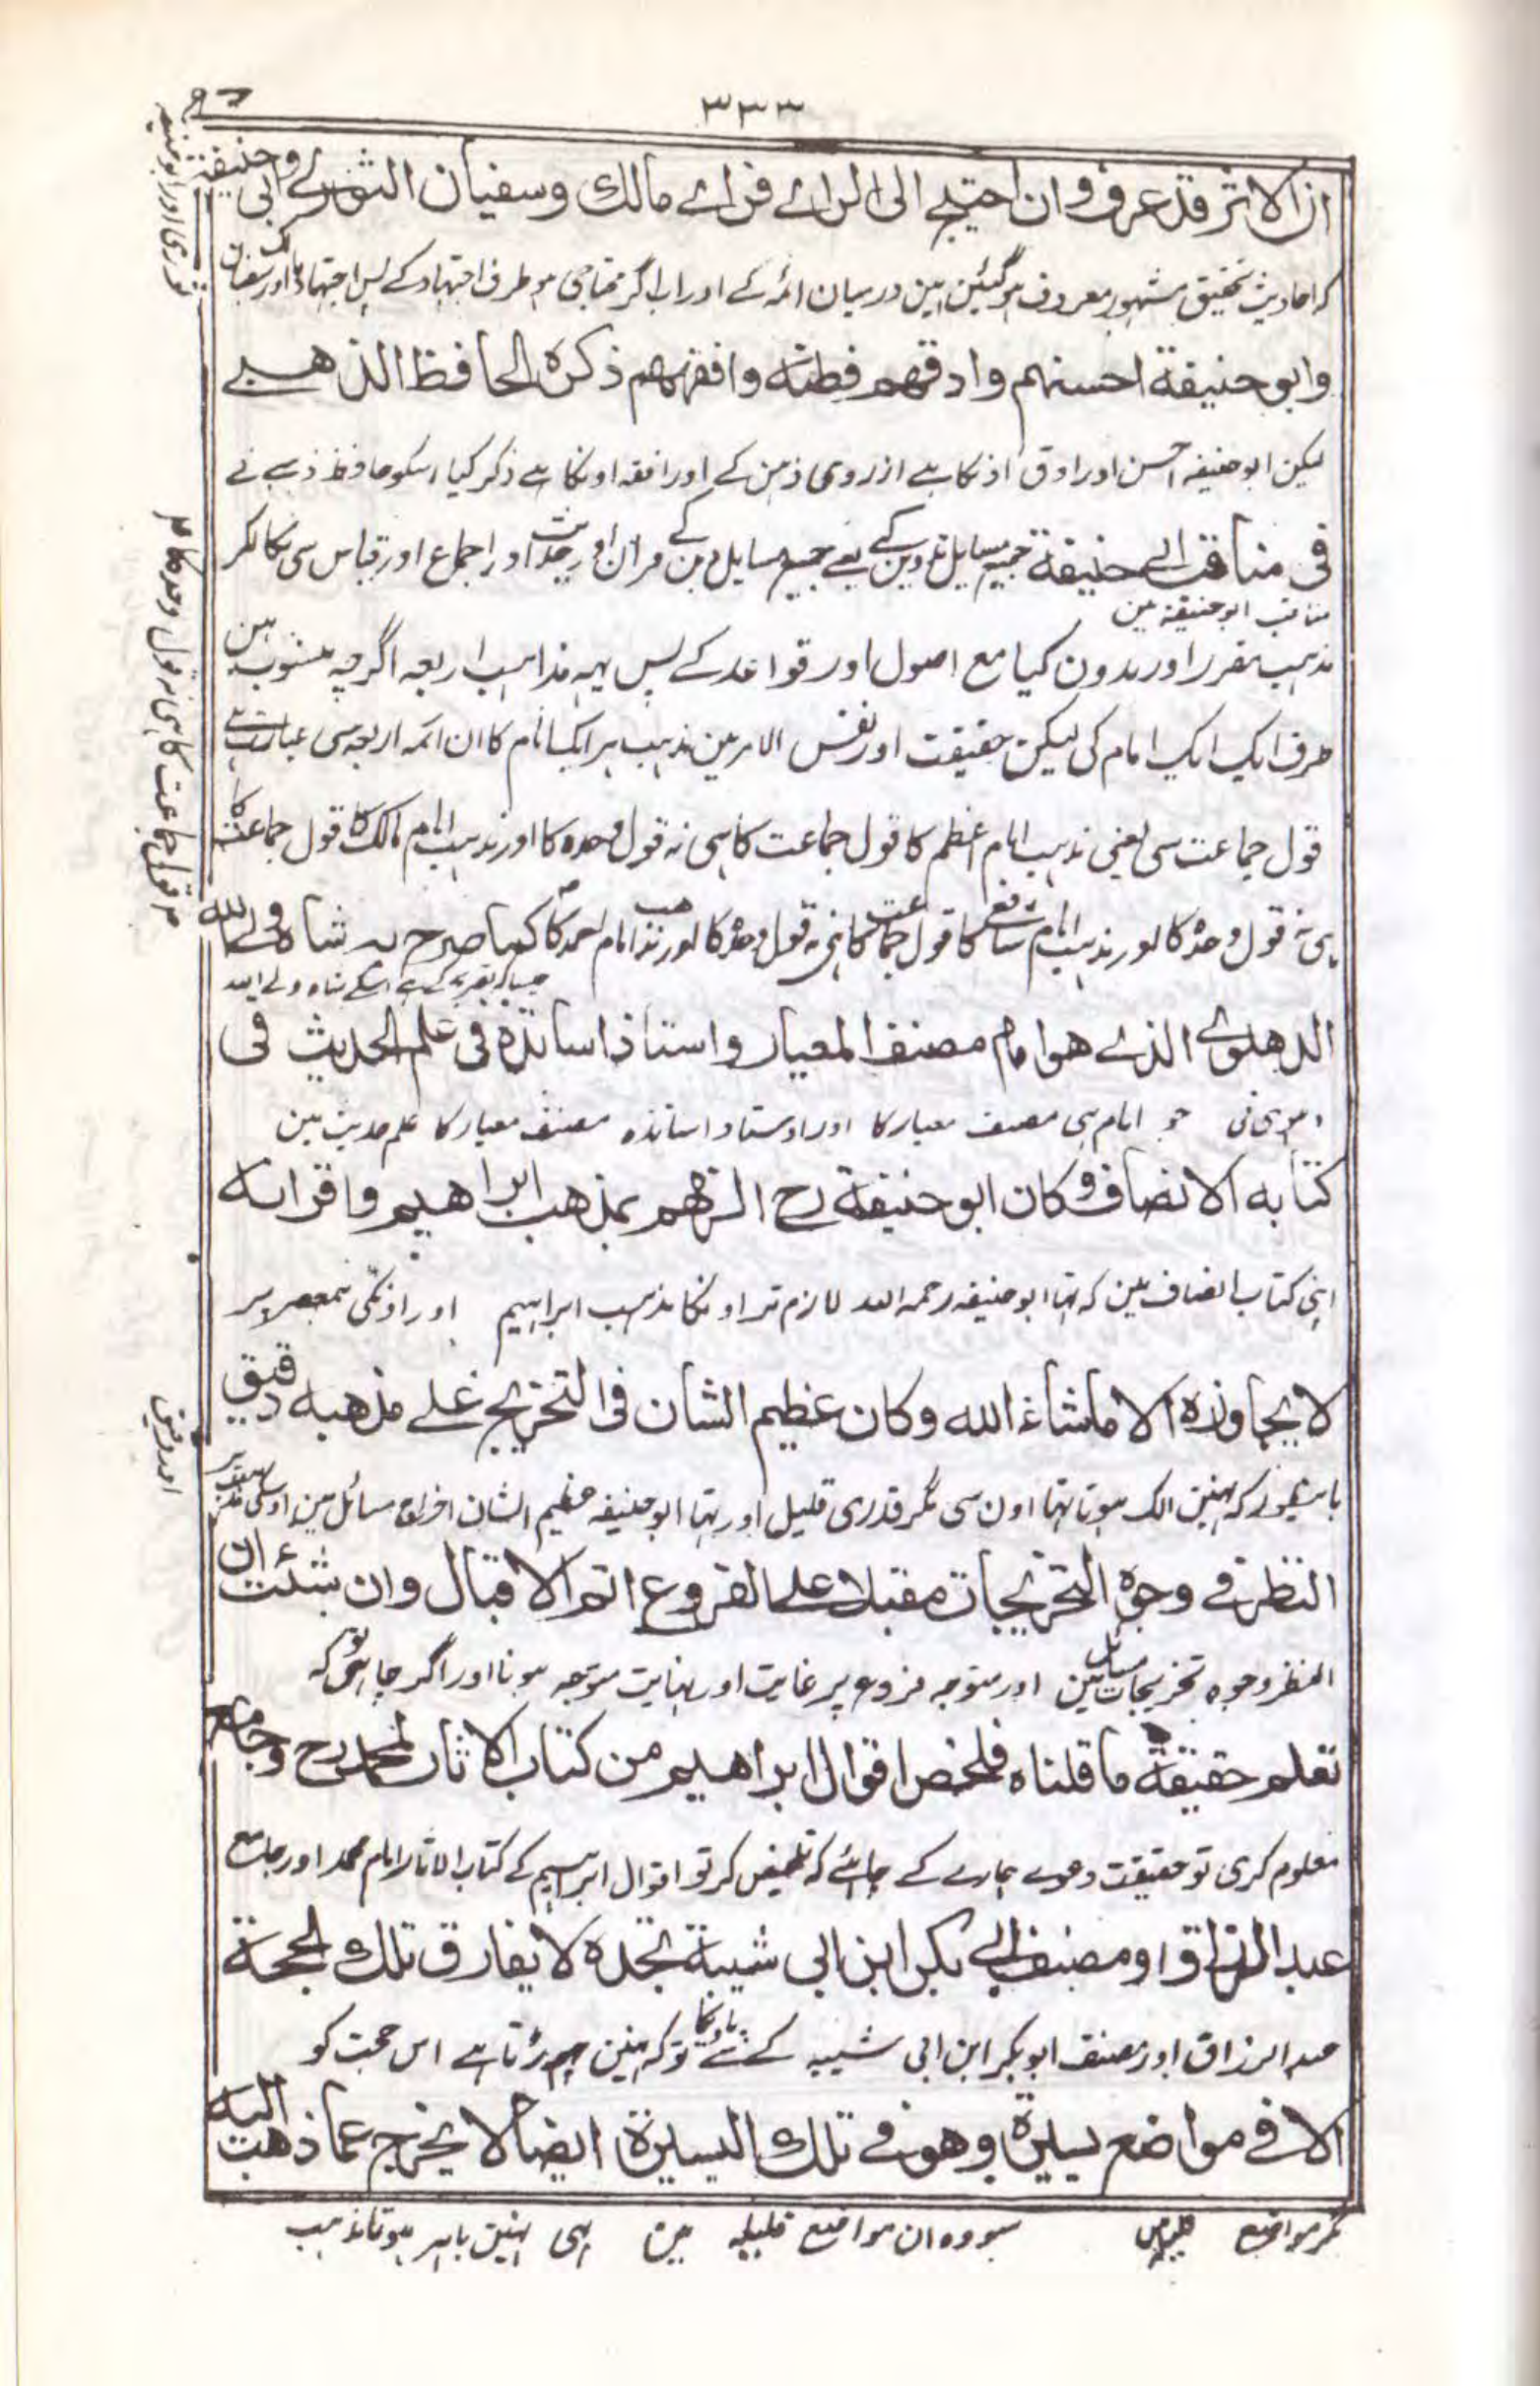 ۳۳۳
ان الاثر قد عرف وان احتیج الی الرائے فرائے مالك وسفیان الثوری وابی حنیفة
که احادیث تحقیق مشہور معروف ہوگئین ہین درمیان ائمہ کے اور اب اگر محتاجی ہو طرف اجتہاد کے پس اجتہاد مالک اور سفیان
ثوری اور ابو حنیفہ
وابو حنیفة احسنهم وادقهم فطنة وافقههم ذکره الحافظ الذهبے
لیکن ابو حنیفہ احسن اور ادق اذنکا ہے از روی ذہن کے اور افقہ اونکا ہے ذکر کیا اسکو حافظ ذہبے نے
فی مناقب ابی حنیفة جمیع مسایل تدوین کے یعے جمیع مسایل دین کے قران اور حدیث اور اجماع اور قیاس سی نکالکر
مناقب ابو حنیفہ مین
مذہب مقرر اور مدون کیا مع اصول اور قواعد کے پس یہہ مذاہب اربعہ اگرچہ منسوب ہین
طرف ایک ایک امام کی لیکن حقیقت اور نفس الامر مین مذہب ہر ایک امام کا ان ائمہ اربعہ سی عبارت ہے
قول جماعت سی یعنی مذہب امام اعظم کا قول جماعت کا ہی نہ قول وحدہ کا اور مذہب امام مالک کا قول جماعت کا
ہی نہ قول وحدہ کا اور مذہب امام شافعی کا قول جماعت کا ہی نہ قول وحدہ کا اور مذہب امام احمد کا کما صرح به شاه ولی الله
قول جماعت کا ہی نہ قول وحدہ کا
جیسا کہ تصریح کی ہے اسکے شاہ ولے اللہ
الدهلوی الذے هو امام مصنف المعیار واستاذ اساتذة فی علم الحدیث فی
دہلوی نی جو امام ہی مصنف معیار کا اور اوستاد اساتذہ مصنف معیار کا علم حدیث مین
کتابه الانصاف وکان ابو حنیفة رح الزمهم بمذهب ابراهیم واقرانه
اپنی کتاب انصاف مین کہ تہا ابو حنیفہ رحمہ اللہ لازم تر اونکا مذہب ابراہیم اور اونکی ہمعصر پر
لا یجاوزه الا ماشاء الله وکان عظیم الشان فی التخریج علے مذهبه دقیق
باینطور کہ نہین الک ہوتا تہا اون سی مگر قدری قلیل اور تہا ابو حنیفہ عظیم الشان اخراج مسائل مین اوسکی مذہب پر
اور دقیق
النظر فے وجوه التخریجات مقبلا علے الفروع اتم الاقبال وان شئت ان
النظر وجوہ تخریجات مسایل مین اور متوجہ فروع پر غایت اور نہایت متوجہ ہونا اور اگر چاہی تو کہ
تعلم حقیقة ما قلناه فلخص اقوال ابراهیم من کتاب الاثار لمحمد رح وجامع
معلوم کری تو حقیقت دعوے ہمارے کے چاہئے کہ تلخیص کر تو اقوال ابراہیم کے کتاب الاثار امام محمد اور جامع
عبد الرزاق او مصنف ابی بکر ابن ابی شیبة تجده لا یفارق تلك الحجة
عبد الرزاق اور مصنف ابو بکر ابن ابی شیبہ کے سے پاویگا تو کہ نہین چہوڑتا ہے اس حجت کو
الا فے مواضع یسیرة وهو فے تلك الیسیرة ایضا لا یخرج عما ذهبت الیه
مگر مواضع سو وہ ان مواضع قلیلہ مین بہی نہین باہر ہوتا مذہب